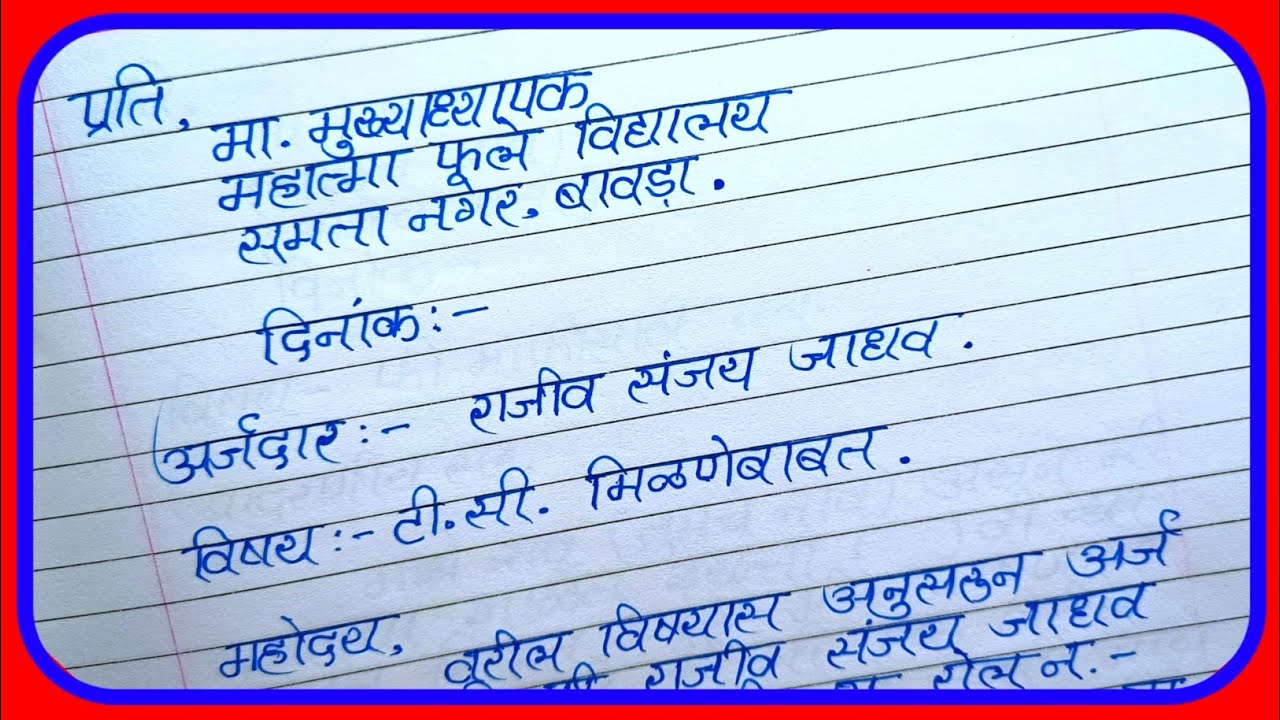 प्रति,
मा. मुख्याध्यापक
महात्मा फूले विद्यालय
समता नगर, बावड़ा.
दिनांक:-
अर्जदार:- राजीव संजय जाधव.
विषय:- टी.सी. मिळणेबाबत.
महोदय,
वरील विषयास अनुसरुन अर्ज
राजीव संजय जाधव
रोल नं.-